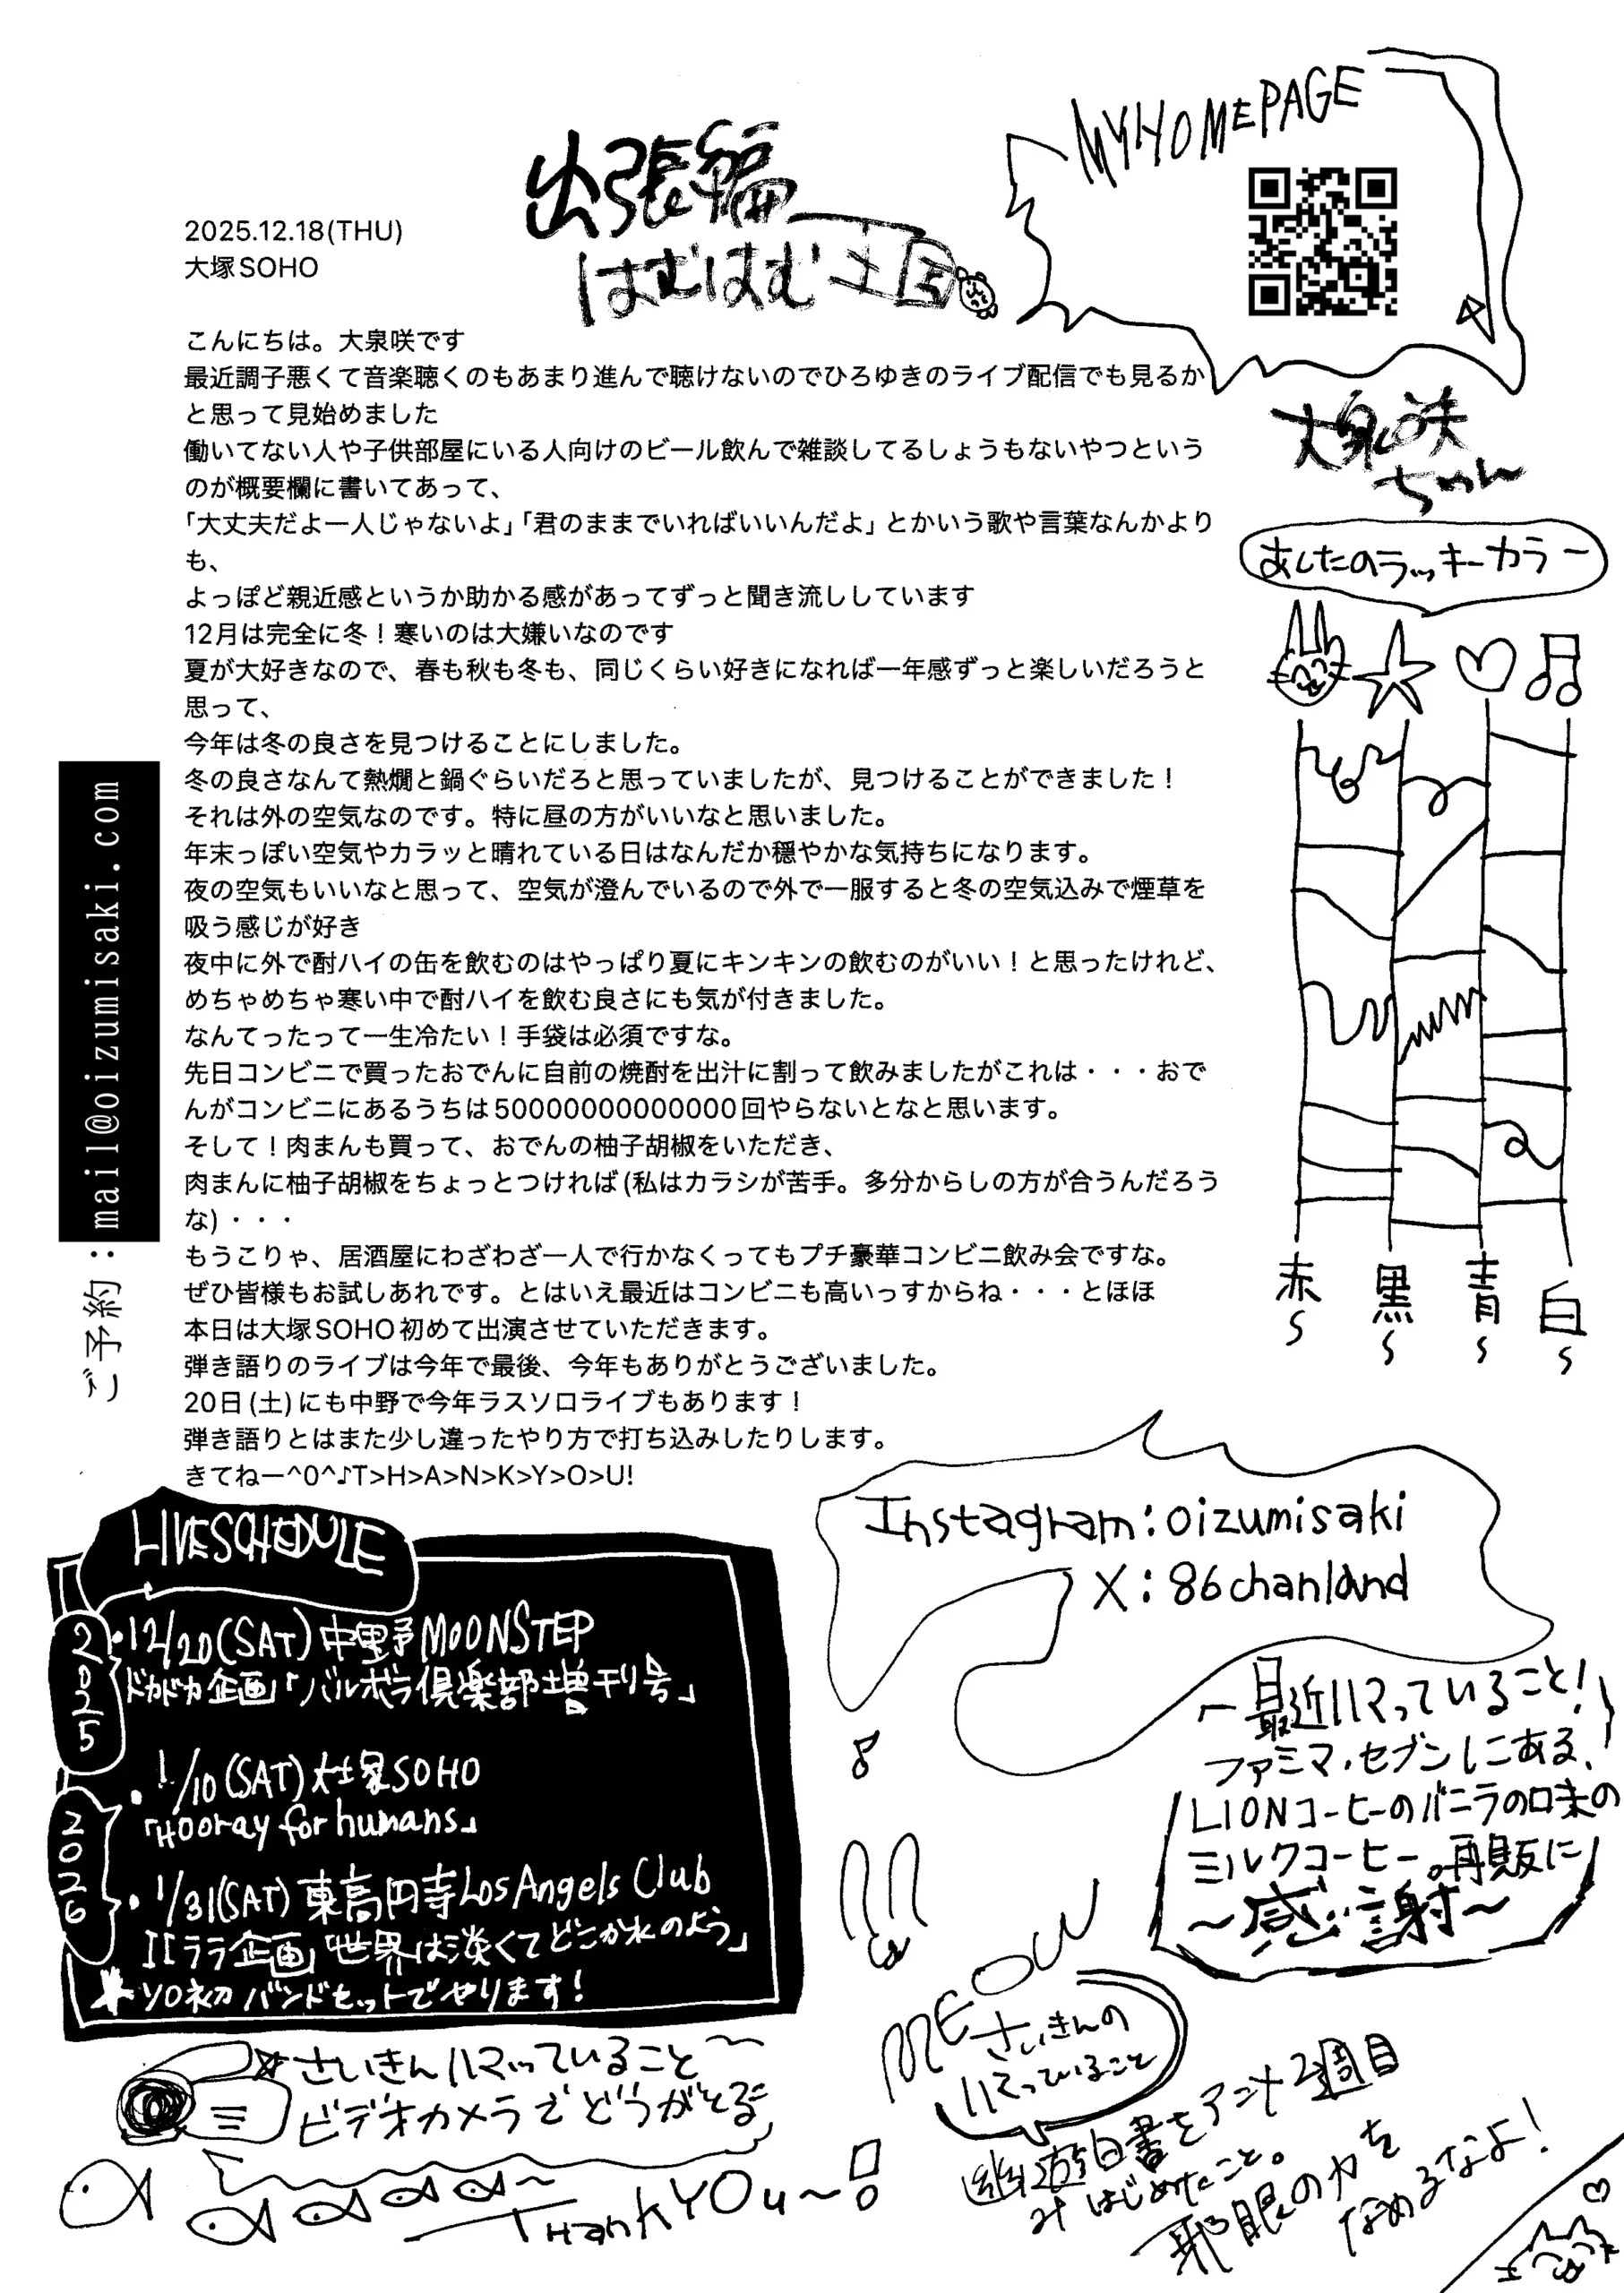 出張編
はむはむ王国
MYHOMEPAGE
2025.12.18(THU)
大塚SOHO
こんにちは。大泉咲です
最近調子悪くて音楽聴くのもあまり進んで聴けないのでひろゆきのライブ配信でも見るか
と思って見始めました
働いてない人や子供部屋にいる人向けのビール飲んで雑談してるしょうもないやつという
のが概要欄に書いてあって、
「大丈夫だよ一人じゃないよ」「君のままでいればいいんだよ」とかいう歌や言葉なんかより
も、
よっぽど親近感というか助かる感があってずっと聞き流ししています
12月は完全に冬！寒いのは大嫌いなのです
夏が大好きなので、春も秋も冬も、同じくらい好きになれば一年感ずっと楽しいだろうと
思って、
今年は冬の良さを見つけることにしました。
冬の良さなんて熱燗と鍋ぐらいだろと思っていましたが、見つけることができました！
それは外の空気なのです。特に昼の方がいいなと思いました。
年末っぽい空気やカラッと晴れている日はなんだか穏やかな気持ちになります。
夜の空気もいいなと思って、空気が澄んでいるので外で一服すると冬の空気込みで煙草を
吸う感じが好き
夜中に外で酎ハイの缶を飲むのはやっぱり夏にキンキンの飲むのがいい！と思ったけれど、
めちゃめちゃ寒い中で酎ハイを飲む良さにも気が付きました。
なんてったって一生冷たい！手袋は必須ですな。
先日コンビニで買ったおでんに自前の焼酎を出汁に割って飲みましたがこれは・・・おで
んがコンビニにあるうちは50000000000000回やらないとなと思います。
そして！肉まんも買って、おでんの柚子胡椒をいただき、
肉まんに柚子胡椒をちょっとつければ(私はカラシが苦手。多分からしの方が合うんだろう
な)・・・
もうこりゃ、居酒屋にわざわざ一人で行かなくってもプチ豪華コンビニ飲み会ですな。
ぜひ皆様もお試しあれです。とはいえ最近はコンビニも高いっすからね・・・とほほ
本日は大塚SOHO初めて出演させていただきます。
弾き語りのライブは今年で最後、今年もありがとうございました。
20日(土)にも中野で今年ラスソロライブもあります！
弾き語りとはまた少し違ったやり方で打ち込みしたりします。
きてねー^0^♪T>H>A>N>K>Y>O>U!
ご予約：mail@oizumisaki.com
大泉咲
ちゃん
あしたのラッキーカラー
赤〜
黒〜
青〜
白〜
LIVESCHEDULE
2025
・12/20(SAT)中野MOONSTEP
ドカドカ企画「バルボラ倶楽部増刊号」
2026
・1/10(SAT)大塚SOHO
「Hooray for humans」
・1/31(SAT)東高円寺Los Angels Club
エエララ企画「世界は淡くてどこか水のよう」
★ソロ初バンドセットでやります！
Instagram:oizumisaki
X:86chanland
最近ハマっていること！
ファミマ・セブンにある、
LIONコーヒーのバニラの味の
ミルクコーヒー。再販に
〜感謝〜
MEOW
さいきんの
ハマっていること
幽遊白書をアニナ2週目
みはじめたこと。
邪眼の力を
なめるなよ！
さいきんハマっていること〜
ビデオカメラでどうがとる
THankYOu〜！